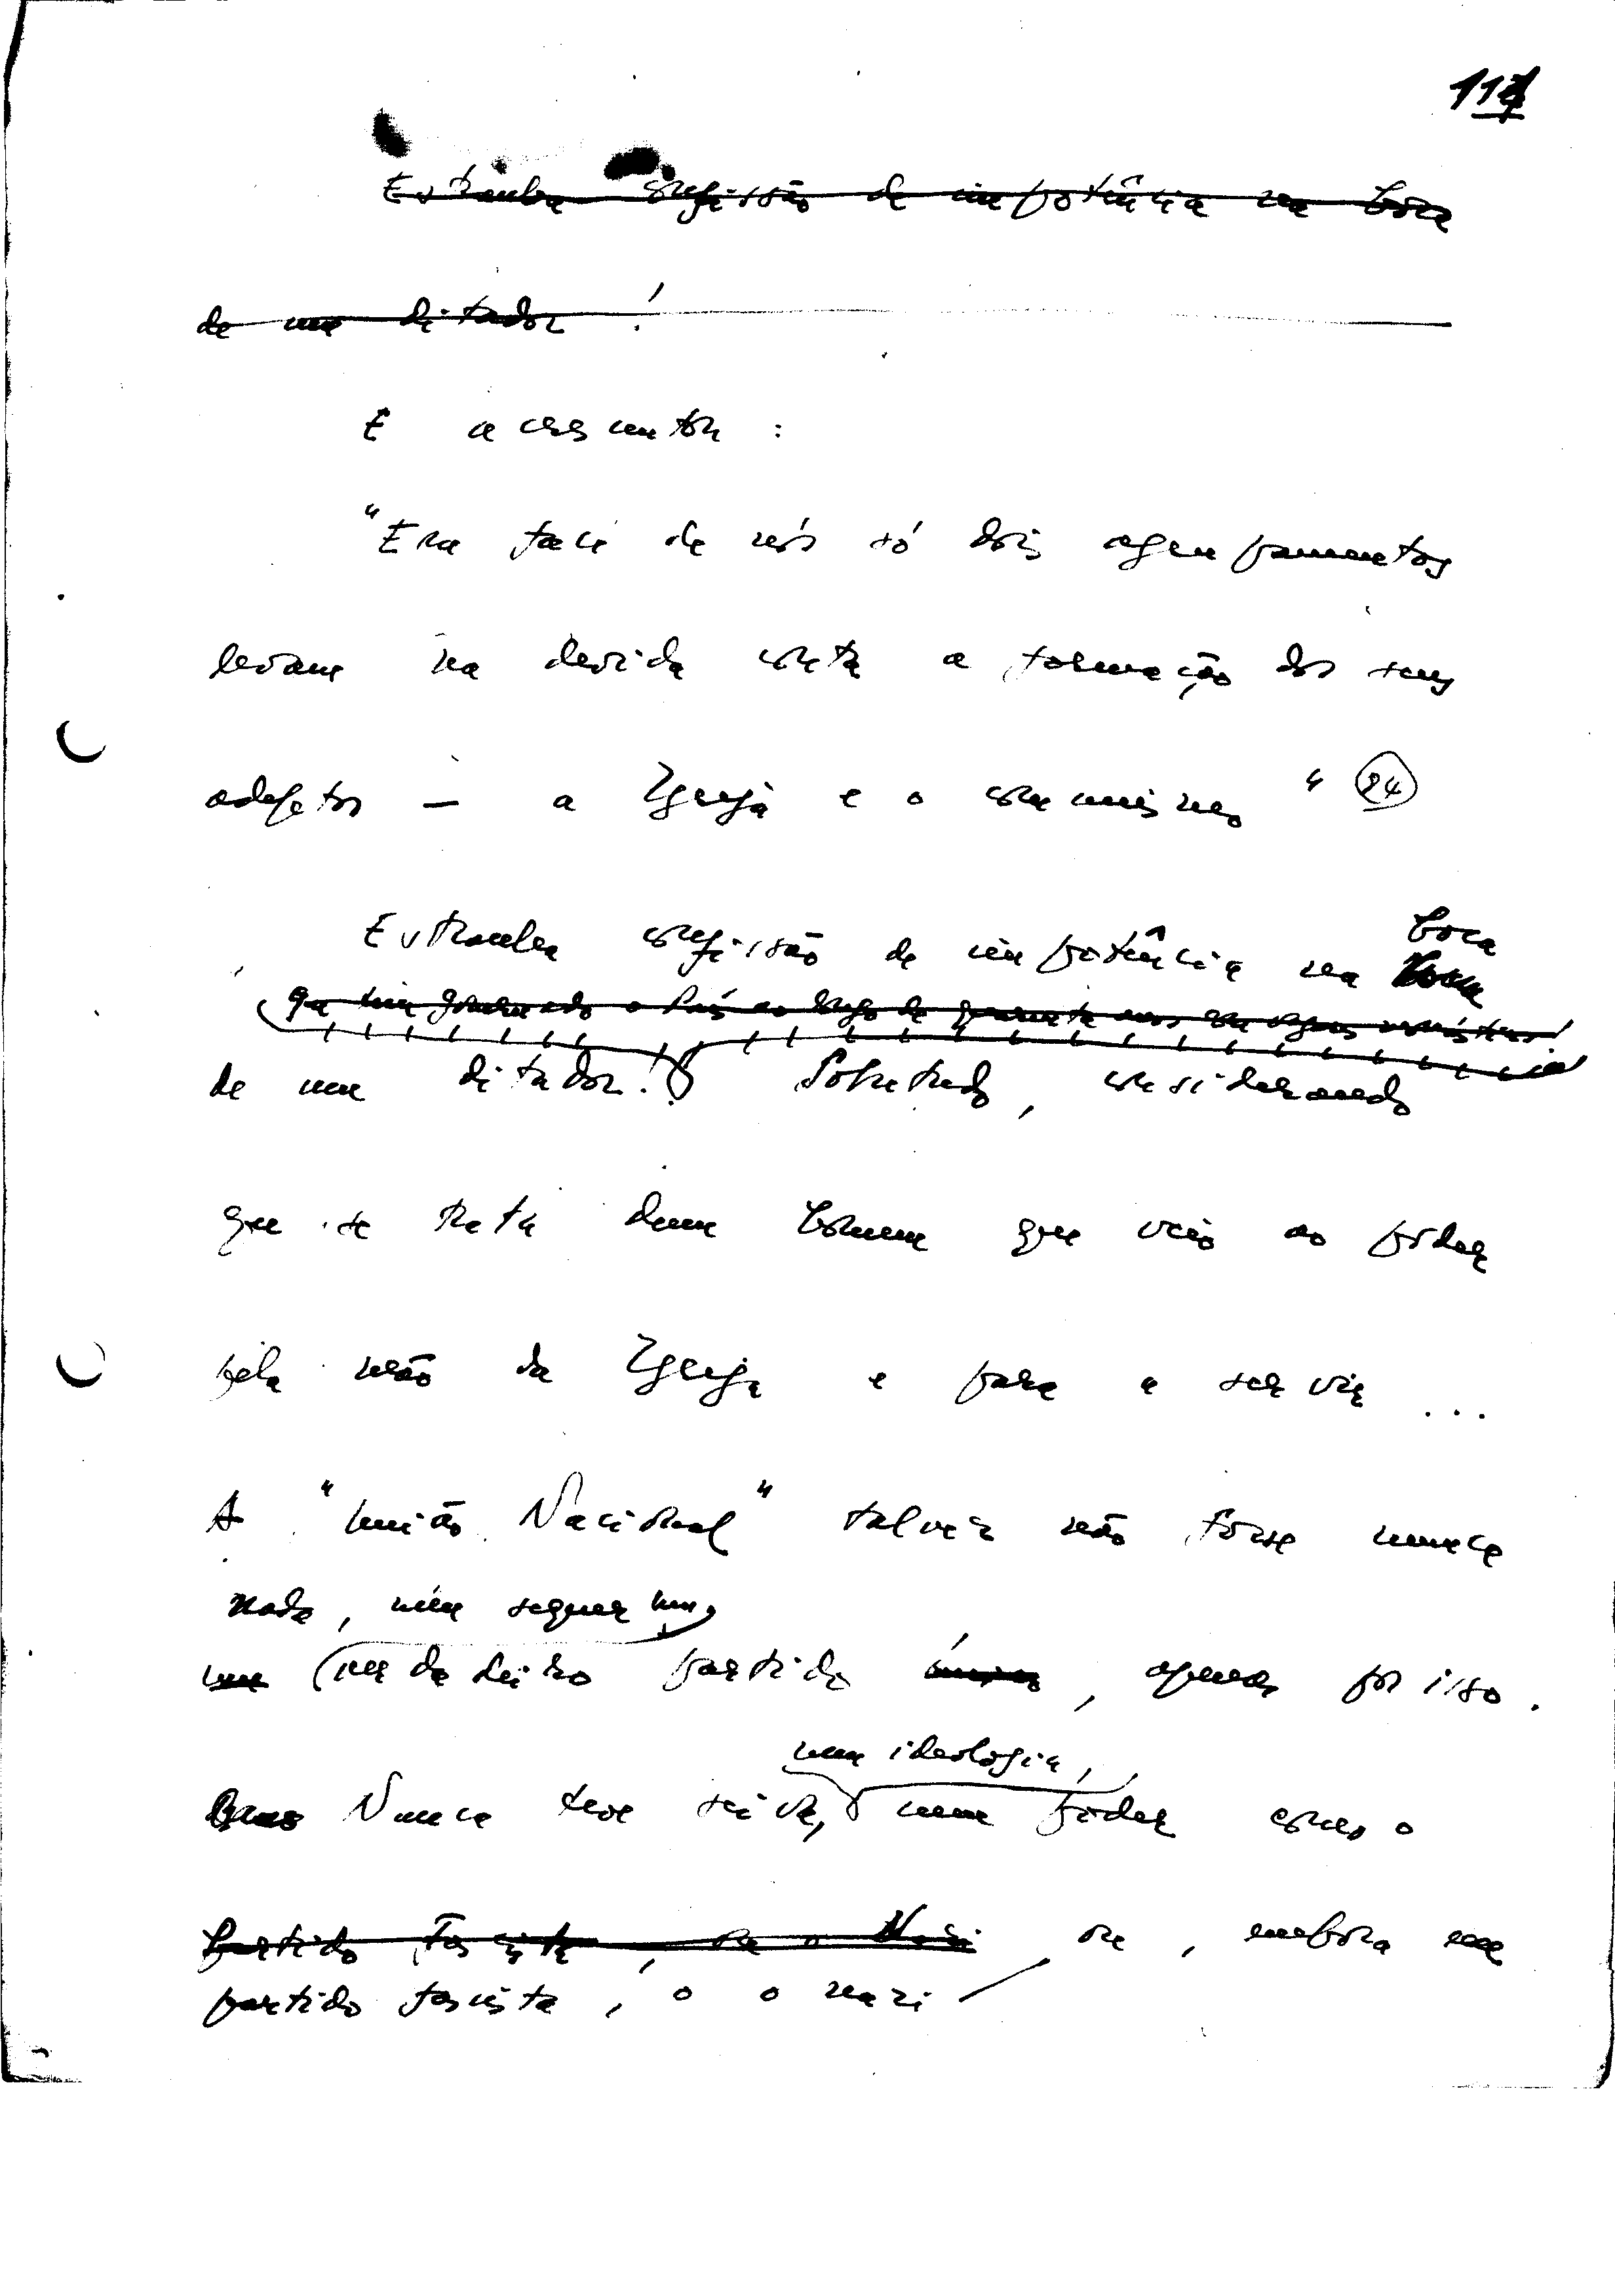 117
Estranha confissão de impotência na boca
de um ditador!
E acrescenta:
"Em face de nós só dois agrupamentos
levam na devida conta a formação dos seus
adeptos — a Igreja e o comunismo" (24)
Estranha confissão de impotência na boca
que tem governado o País ao longo de quarenta anos com
de um ditador! Sobretudo, considerando
que se trata dum homem que veio ao poder
pela mão da Igreja e para a servir ...
A "União Nacional" talvez não fosse nunca
nada, nem sequer um,
um verdadeiro partido único, apenas por isso.
uma ideologia,
Nunca teve seiva, nem poder como o
Partido Fascista, ou o Nazi ou, embora
partido fascista, o o nazi